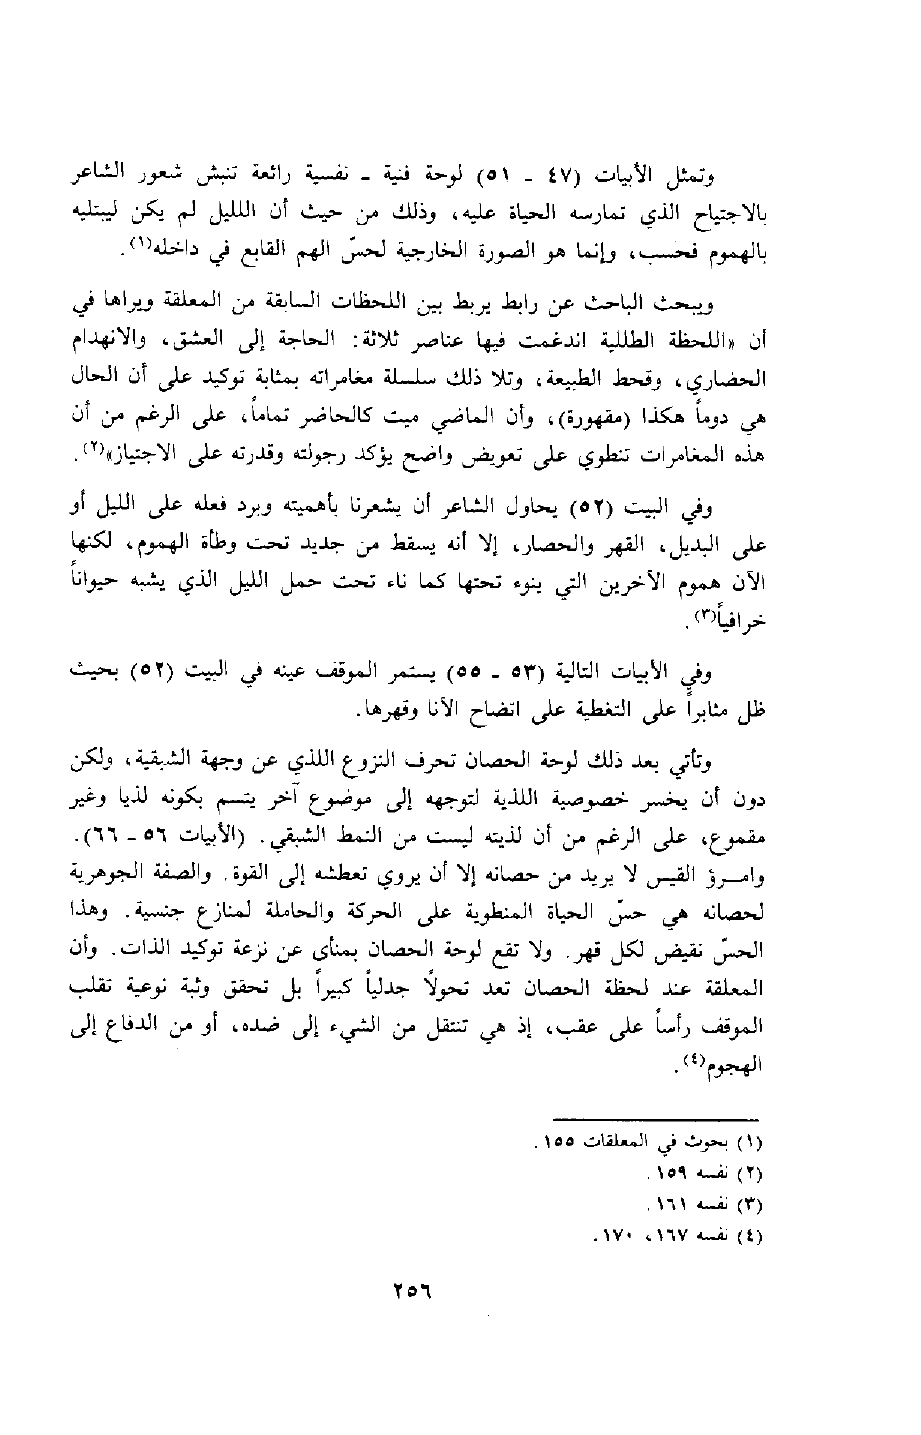 وتمثل الأبيات (٤٧ - ٥١) لوحة فنية - نفسية رائعة تنبش شعور الشاعر
بالاجتياح الذي تمارسه الحياة عليه، وذلك من حيث أن الليل لم يكن ليبتليه
بالهموم فحسب، وإنما هو الصورة الخارجية لحسّ الهم القابع في داخله(١).
ويبحث الباحث عن رابط يربط بين اللحظات السابقة من المعلقة ويراها في
أن «اللحظة الطللية اندغمت فيها عناصر ثلاثة: الحاجة إلى العشق، والانهدام
الحضاري، وقحط الطبيعة، وتلا ذلك سلسلة مغامراته بمثابة توكيد على أن الحال
هي دوماً هكذا (مقهورة)، وأن الماضي ميت كالحاضر تماماً، على الرغم من أن
هذه المغامرات تنطوي على تعويض واضح يؤكد رجولته وقدرته على الاجتياز»(٢).
وفي البيت (٥٢) يحاول الشاعر أن يشعرنا بأهميته وبرد فعله على الليل أو
على البديل، القهر والحصار، إلا أنه يسقط من جديد تحت وطأة الهموم، لكنها
الآن هموم الآخرين التي ينوء تحتها كما ناء تحت حمل الليل الذي يشبه حيواناً
خرافياً(٣).
وفي الأبيات التالية (٥٣ - ٥٥) يستمر الموقف عينه في البيت (٥٢) بحيث
ظل مثابراً على التغطية على اتضاح الأنا وقهرها.
وتأتي بعد ذلك لوحة الحصان تحرف النزوع اللذي عن وجهة الشبقية، ولكن
دون أن يخسر خصوصية اللذية لتوجهه إلى موضوع آخر يتسم بكونه لذيا وغير
مقموع، على الرغم من أن لذيته ليست من النمط الشبقي. (الأبيات ٥٦ - ٦٦).
وامرؤ القيس لا يريد من حصانه إلا أن يروي تعطشه إلى القوة. والصفة الجوهرية
لحصانه هي حسّ الحياة المنطوية على الحركة والحاملة لمنازع جنسية. وهذا
الحسّ نقيض لكل قهر. ولا تقع لوحة الحصان بمنأى عن نزعة توكيد الذات. وأن
المعلقة عند لحظة الحصان تعد تحولاً جدلياً كبيراً بل تحقق وثبة نوعية تقلب
الموقف رأساً على عقب، إذ هي تنتقل من الشيء إلى ضده، أو من الدفاع إلى
الهجوم(٤).
(١) بحوث في المعلقات ١٥٥.
(٢) نفسه ١٥٩.
(٣) نفسه ١٦١.
(٤) نفسه ١٦٧، ١٧٠.
٢٥٦